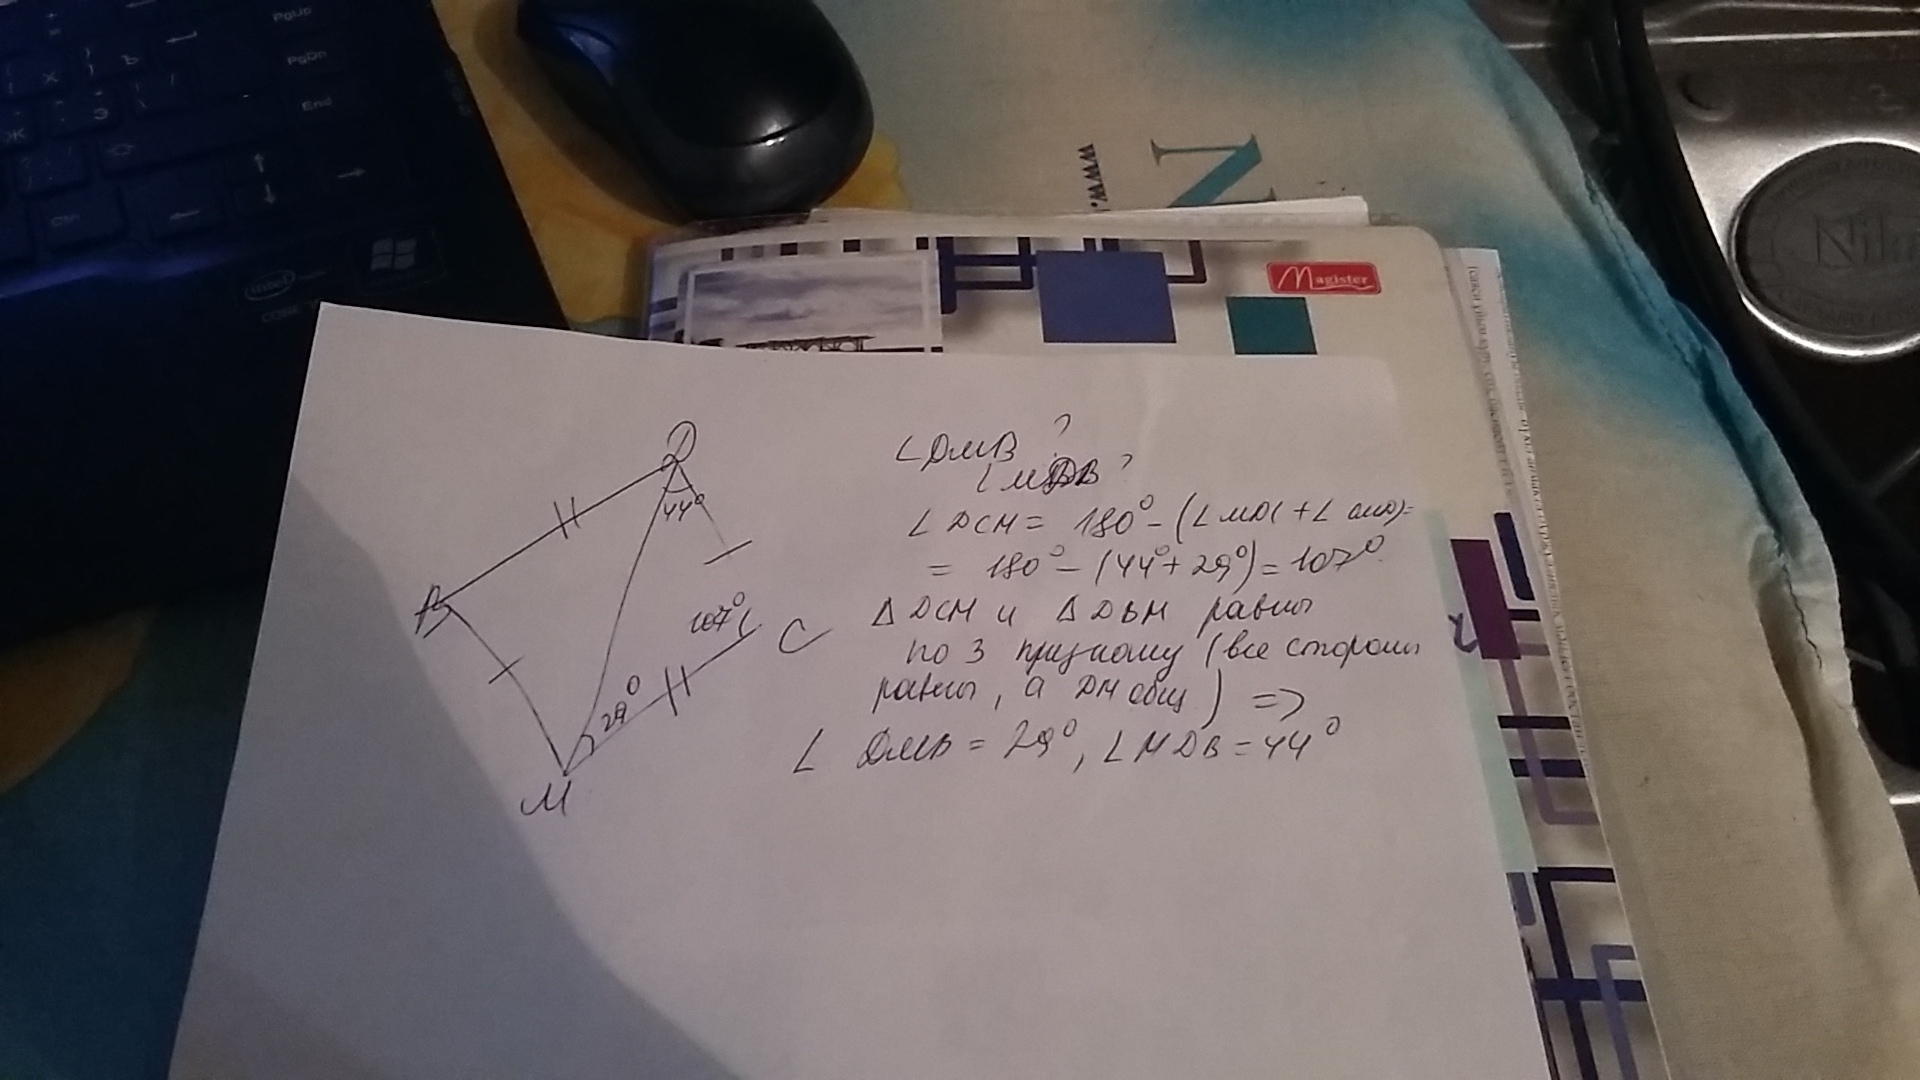 PgUp
PgDn
End
Ctrl
intel
CORE
www.
N
Magister
Nika
D
44°
B
107°
C
29°
M
∠DMB ?
∠MDB ?
∠DCM = 180° - (∠MDC + ∠CMD) =
= 180° - (44° + 29°) = 107°
Δ DCM и Δ DBM равны
по 3 признаку (все стороны
равны, а DM общ) =>
∠ DMB = 29°, ∠MDB = 44°